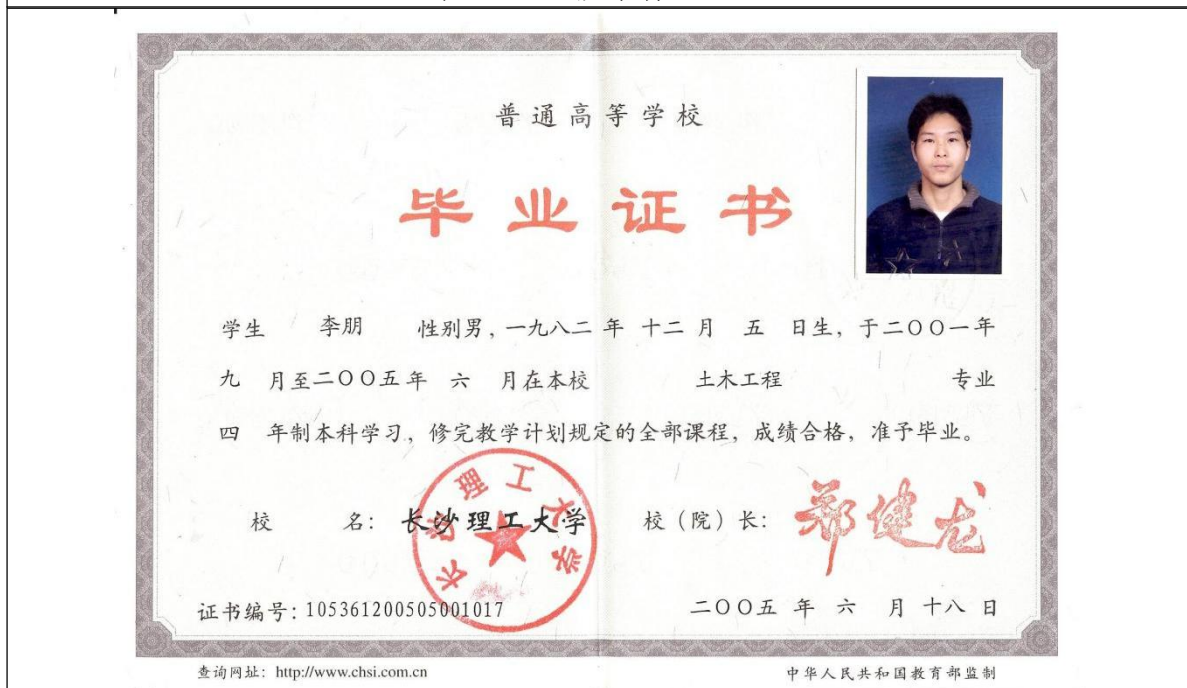 普通高等学校
毕业证书
学生 李朋 性别男，一九八二 年 十二 月 五 日生，于二〇〇一年
九 月至二〇〇五年 六 月在本校 土木工程 专业
四 年制本科学习，修完教学计划规定的全部课程，成绩合格，准予毕业。
校 名：长沙理工大学 校（院）长：郑健龙
长沙理工大学
证书编号：105361200505001017 二〇〇五 年 六 月 十八 日
查询网址：http://www.chsi.com.cn 中华人民共和国教育部监制